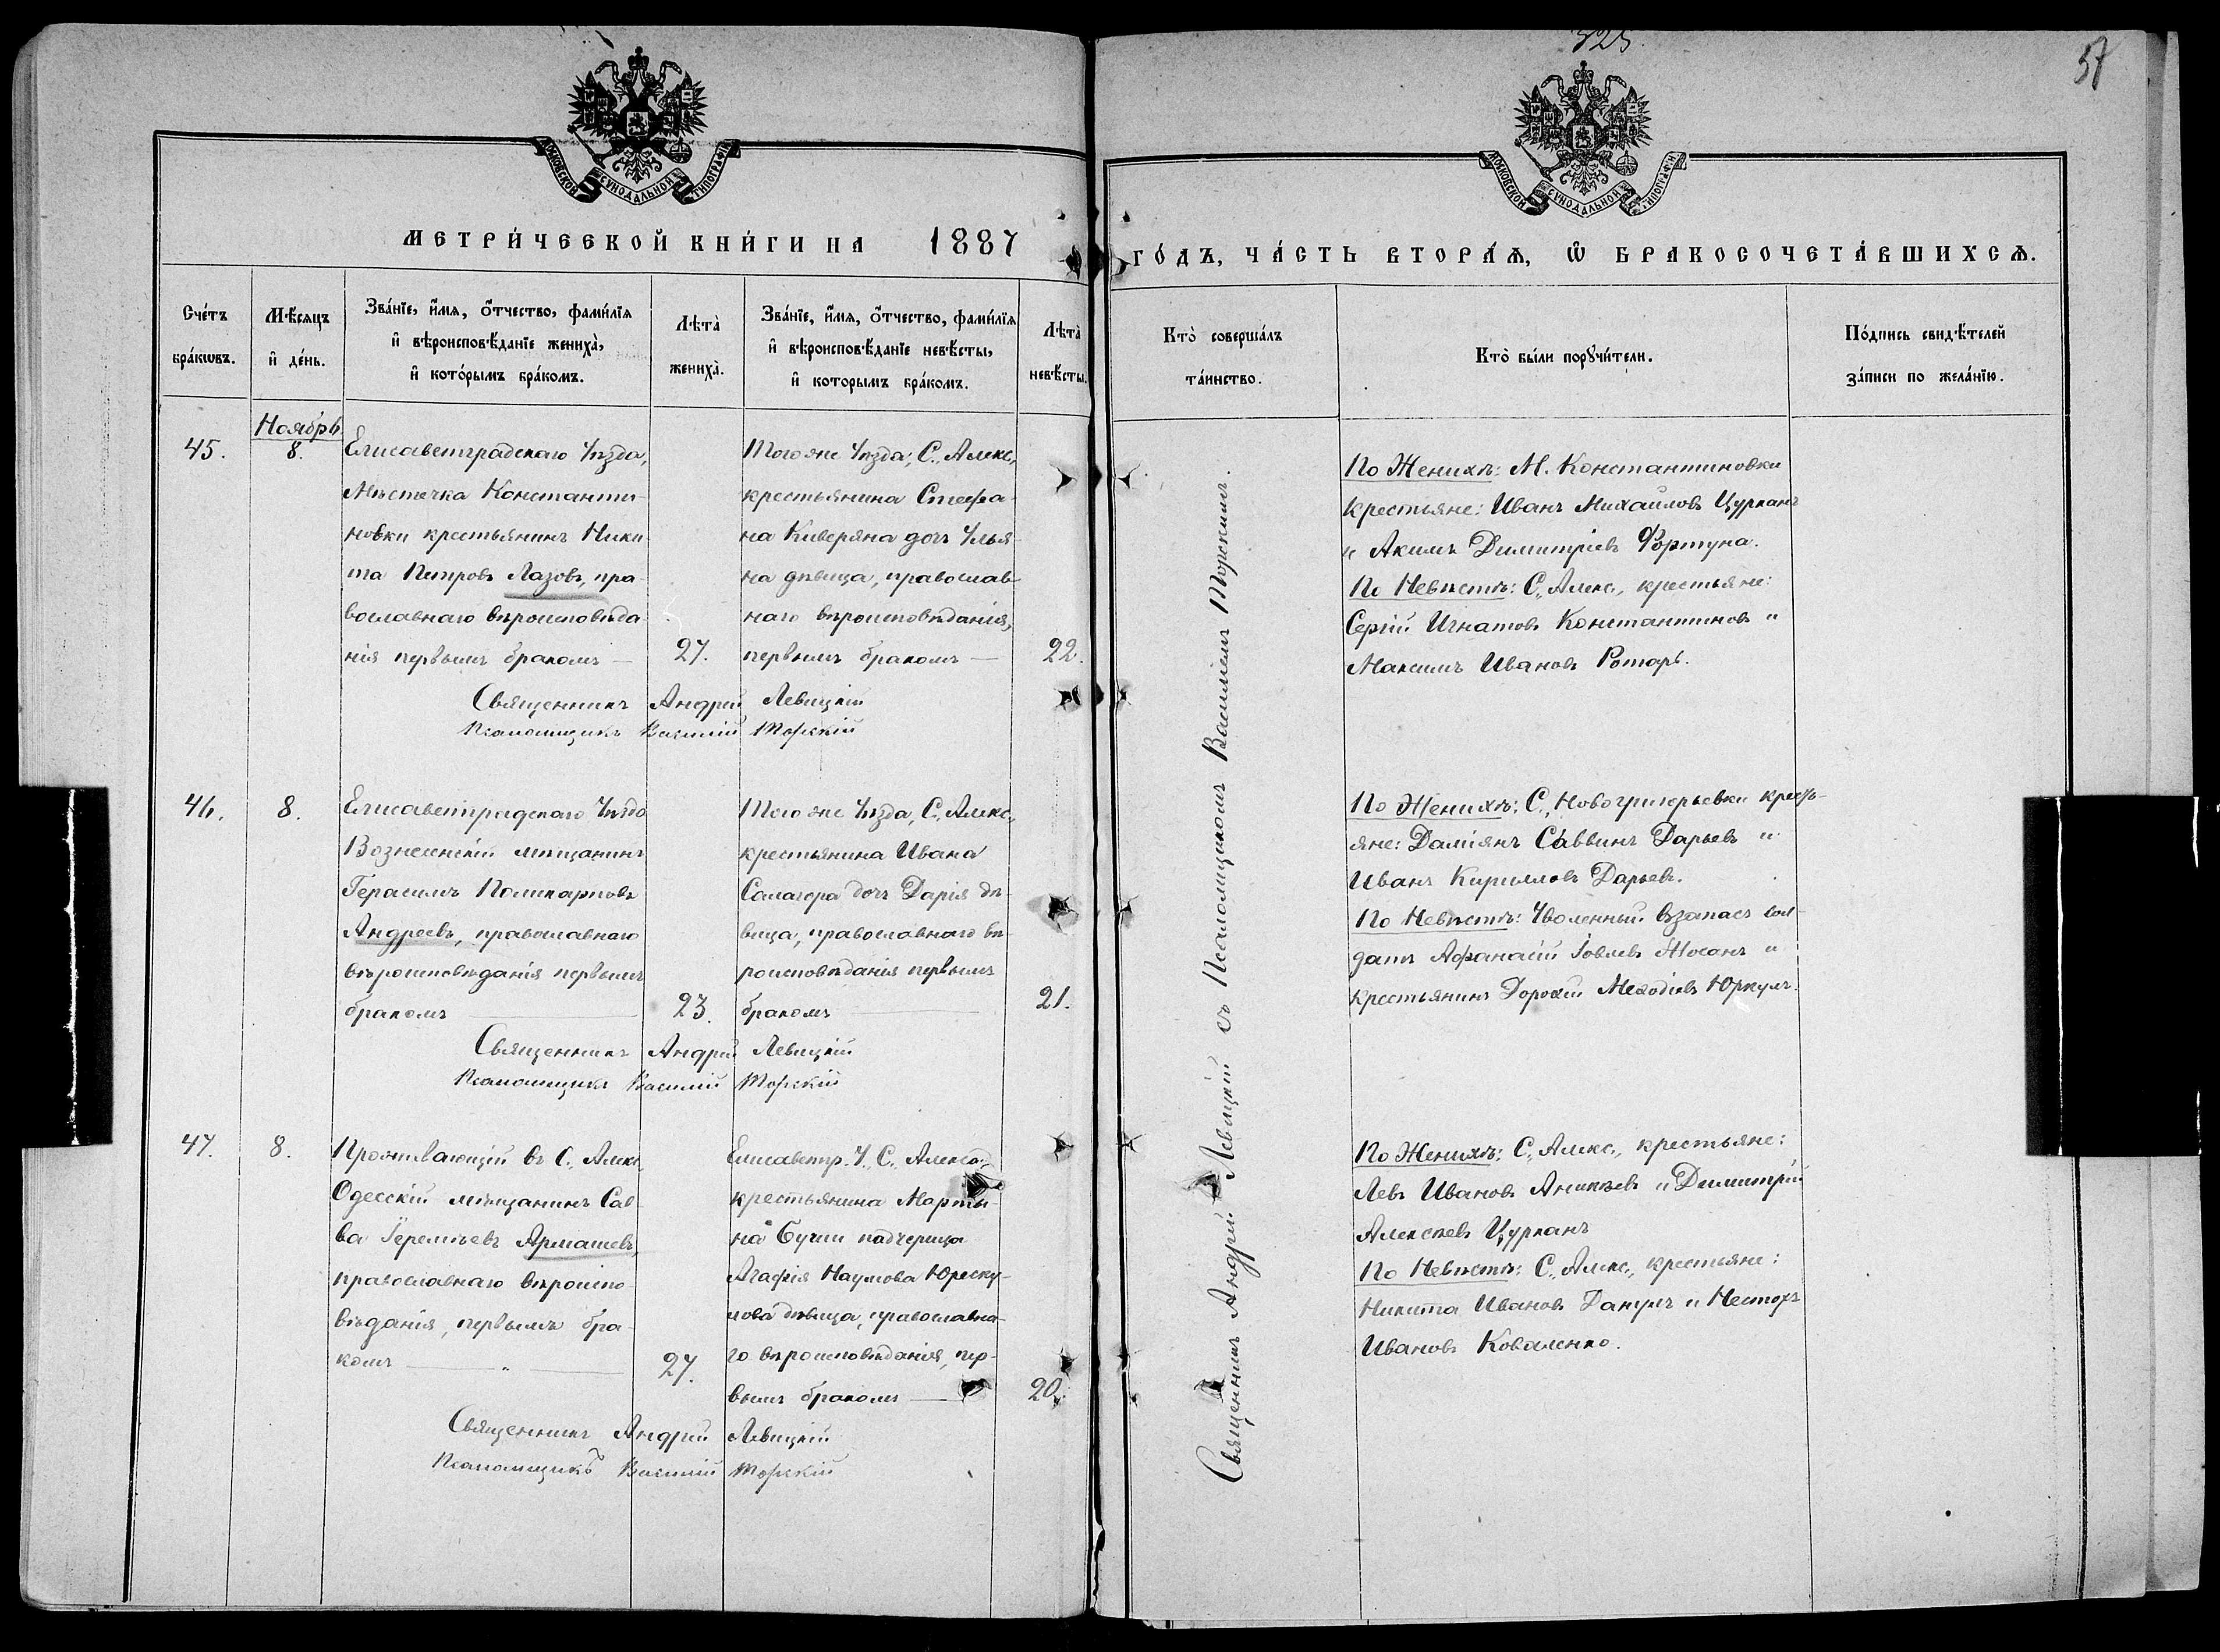 325.
57
МОСКОВСКОЙ СѴНОДАЛЬНОЙ ТИПОГРАФІИ
МОСКОВСКОЙ СѴНОДАЛЬНОЙ ТИПОГРАФІИ
МЕТРИ́ЧЕСКОЙ КНИ́ГИ НА 1887
ГО́ДЪ, ЧА́СТЬ ВТОРА́Ѧ, Ѡ БРАКОСОЧЕТА́ВШИХСѦ.
Сче́тъ
бра́кѡвъ.
Мѣ́сяцъ
и де́нь.
Зва́нїе, и́мя, о́тчество, фами́лїя
и вѣроисповѣ́данїе жениха̀,
и кото́рымъ бра́комъ.
Лѣта̀
жениха̀.
Зва́нїе, и́мя, о́тчество, фами́лїя
и вѣроисповѣ́данїе невѣ́сты,
и которымъ бра́комъ.
Лѣта̀
невѣ́сты.
Кто̀ соверша́лъ
та́инство.
Кто̀ бы́ли порꙋчи́тели.
По́дпись свидѣ́телей
за́писи по жела́нїю.
Ноябрь
45.
8.
Елисаветградскаго Уѣзда,
Мѣстечка Константи-
новки крестьянинъ Ники
та Петровъ Лазовъ, пра-
вославнаго вѣроисповѣда
нія первымъ бракомъ —
27.
Того же Уѣзда, С., Алекс.,
крестьянина Стефа-
на Киверяна дочь Улья-
на дѣвица, православ-
наго вѣроисповѣданія,
первымъ бракомъ —
22.
Священникъ Андрей Левицкій
Псаломщикъ Василій Торскій
По Женихѣ: М. Константиновки
крестьяне: Иванъ Михаиловъ Цурканъ
и Акимъ Димитріевъ Фортуна.
По Невѣстѣ: С., Алекс., крестьяне:
Сергій Игнатовъ Константиновъ и
Максимъ Ивановъ Ротарь.
46.
8.
Елисаветградскаго Уѣзда
Вознесенскій мѣщанинъ
Герасимъ Поликарповъ
Андреевъ, православнаго
вѣроисповѣданія первымъ
бракомъ
23.
Того же Уѣзда, С., Алекс.,
крестьянина Ивана
дочь Дарія дѣ-
вица, православнаго вѣ-
роисповѣданія первымъ
бракомъ
21.
Священникъ Андрей Левицкій
Псаломщикъ Василій Торскій
По Женихѣ: С., Новогригорьевки кресть-
яне: Даміянъ Саввинъ Дарьевъ и
Иванъ Кирилловъ Дарьевъ.
По Невѣстѣ: Уволенный въ запасъ сол-
датъ Афанасій Іовлевъ и
крестьянинъ Дорофей Меѳодіевъ
47.
8.
Проживающій въ С., Алекс.
Одесскій мѣщанинъ Сав-
ва Іеремѣевъ Армашевъ,
православнаго вѣроиспо-
вѣданія, первымъ бра-
комъ
27.
Елисаветгр. У., С., Алекс.,
крестьянина Марты-
на падчерица
Агафія Наумова Юреску-
лова дѣвица, православна-
го вѣроисповѣданія, пер-
вымъ бракомъ —
20.
Священникъ Андрей Левицкій
Псаломщикъ Василій Торскій
По Женихѣ: С., Алекс., крестьяне:
Левъ Ивановъ Аникѣевъ и Димитрій
Алексѣевъ Цурканъ
По Невѣстѣ: С., Алекс., крестьяне:
Никита Ивановъ и Несторъ
Ивановъ Коваленко.
Священникъ Андрей Левицкій съ Псаломщикомъ Василіемъ Торскимъ.